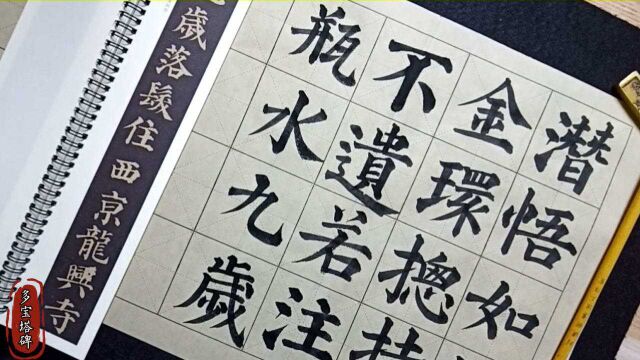 潛悟如
金環揔持
不遺若注
瓶水九歲
歲落髮住西京龍興寺
多宝塔碑